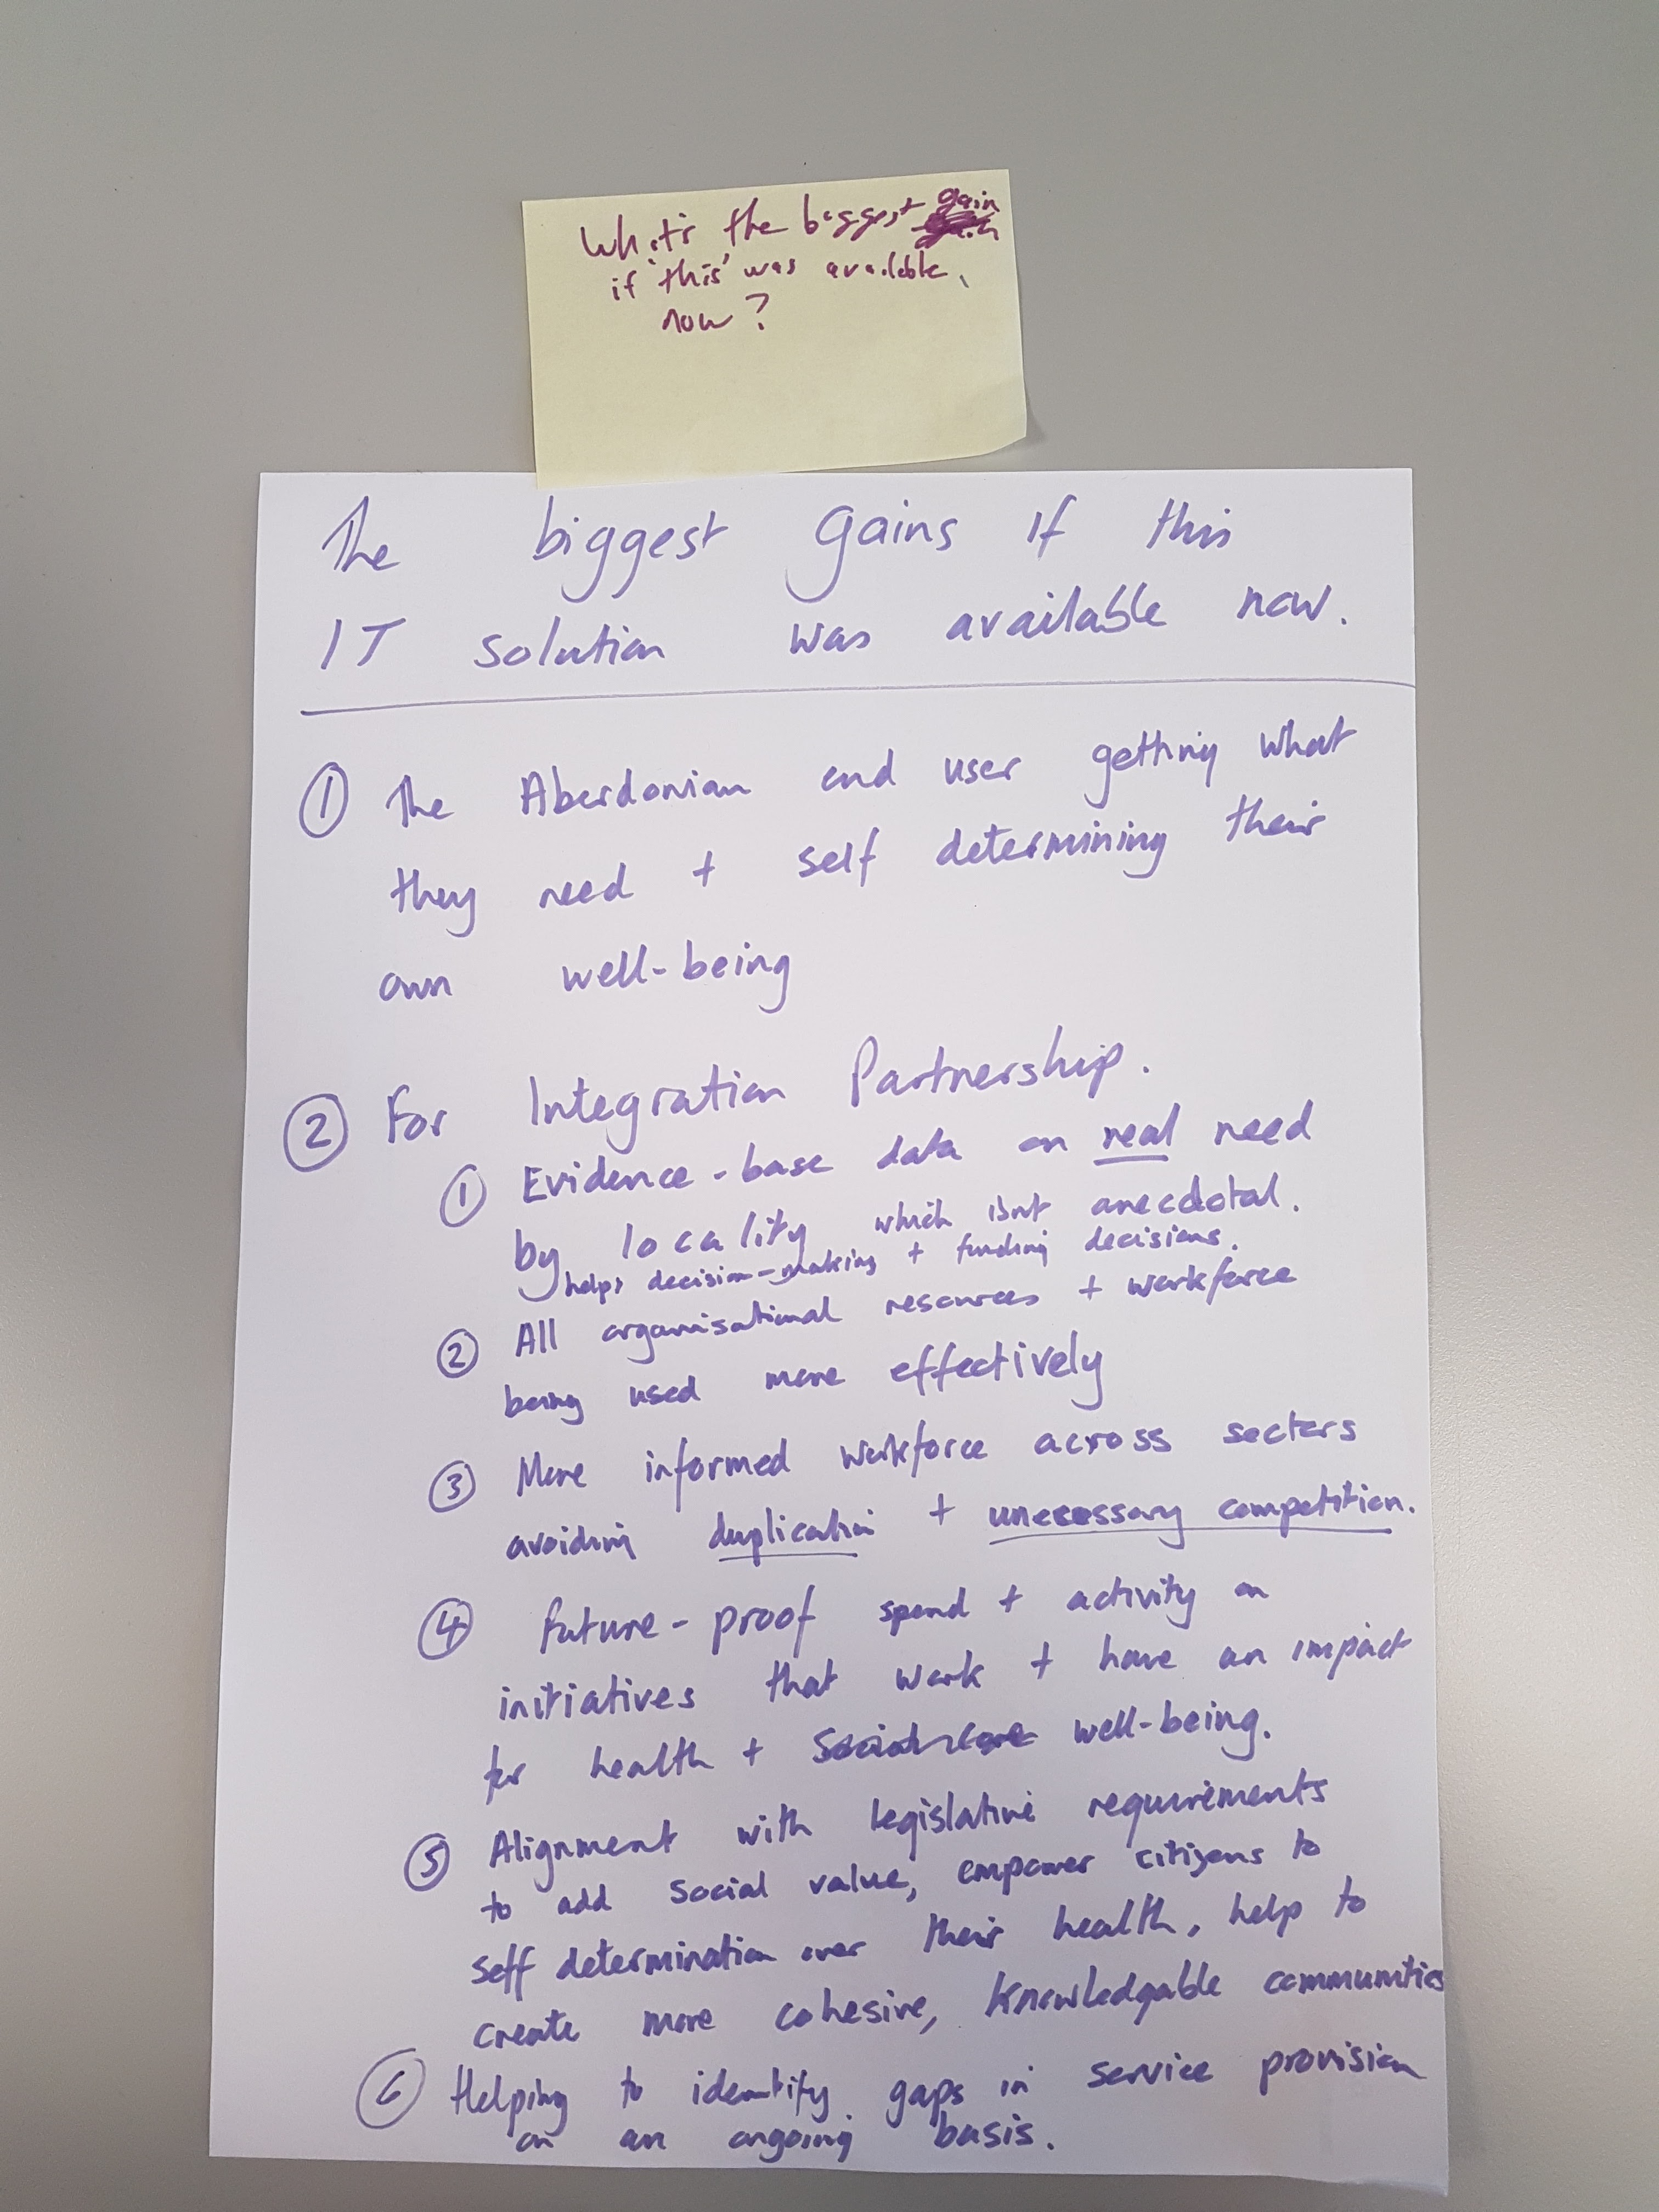 What's the biggest gain
if 'this' was available
now?
The biggest gains if this
IT solution was available now.
① The Aberdonian end user getting what
they need + self determining their
own well-being
② For Integration Partnership.
① Evidence-base data on real need
by locality which isnt anecdotal.
helps decision-making + funding decisions.
② All organisational resources + workforce
being used more effectively
③ More informed workforce across sectors
avoiding duplication + unecessary competition.
④ Future-proof spend + activity on
initiatives that work + have an impact
for health + well-being.
⑤ Alignment with legislative requirements
to add social value, empower citizens to
self determination over their health, help to
create more cohesive, knowledgable communities
⑥ Helping to identify gaps in service provision
on an ongoing basis.